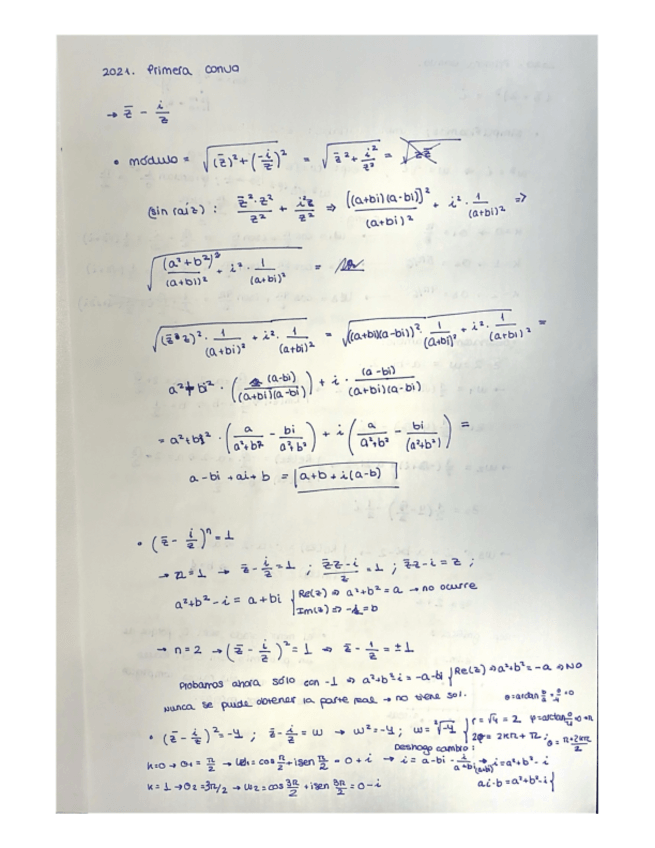 2021. Primera convo
→ z̄ - i/z
• módulo = √((z̄)² + (-i/z)²) = √(z̄² + i²/z²) = √(z̄z̄)
(sin raíz): z̄²·z²/z² + i²/z² ⇒ [(a+bi)(a-bi)]²/(a+bi)² + i²·1/(a+bi)² ⇒
√((a²+b²)²/(a+bi)² + i²·1/(a+bi)²) =
√((z̄·z)²·1/(a+bi)² + i²·1/(a+bi)²) = √((a+bi)(a-bi))²·1/(a+bi)² + i²·1/(a+bi)² =
a²+b²·((a-bi)/((a+bi)(a-bi))) + i·(a-bi)/((a+bi)(a-bi))
= a²+b²·(a/(a²+b²) - bi/(a²+b²)) + i(a/(a²+b²) - bi/(a²+b²)) =
a-bi+ai+b = a+b+i(a-b)
• (z̄ - i/z)ⁿ = 1
→ n=1 → z̄ - i/z = 1 ; (z̄z-i)/z = 1 ; z̄z-i = z ;
a²+b²-i = a+bi { Re(z) ⇒ a²+b² = a → no ocurre
Im(z) ⇒ -1 = b
→ n=2 → (z̄ - i/z)² = 1 ⇒ z̄ - 1/z = ±1
Probamos ahora sólo con -1 ⇒ a²+b²-i = -a-bi { Re(z) ⇒ a²+b² = -a ⇒ No
Nunca se puede obtener la parte real → no tiene sol.
• (z̄ - i/z)² = -4 ; z̄ - i/z = w → w² = -4 ; w = ²√-4 { r = √4 = 2
2φ = 2kπ + π ; θ = (π+2kπ)/2
k=0 → θ₁ = π/2 → w₁ = cos π/2 + isen π/2 = 0 + i → i = a-bi - i/(a+bi) → i = a²+b²-i
Deshago cambio:
k=1 → θ₂ = 3π/2 → w₂ = cos 3π/2 + isen 3π/2 = 0-i
ai-b = a²+b²-i {